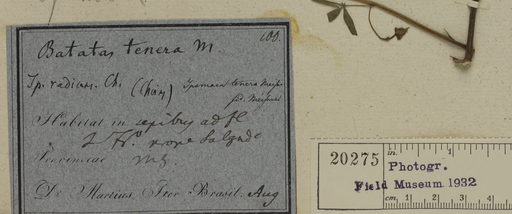 100.
Batatas tenera M.
Ip. radicans. Ch. (Cham)
Ipomoea tenera Meisn
fid. Meisneri
Habitat in ad fl
S. Fr. prope Salgado
Provinciae mg.
Dr. Martius Iter Brasil. Aug
in. 1
20275 Photogr.
Field Museum 1932
cm. 1 2 3 4